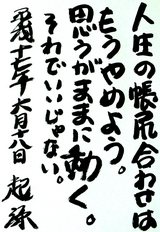 人生の帳尻合わせは
もうやめよう。
思うがままに動く。
それでいいじゃない。
平成十七年六月十八日